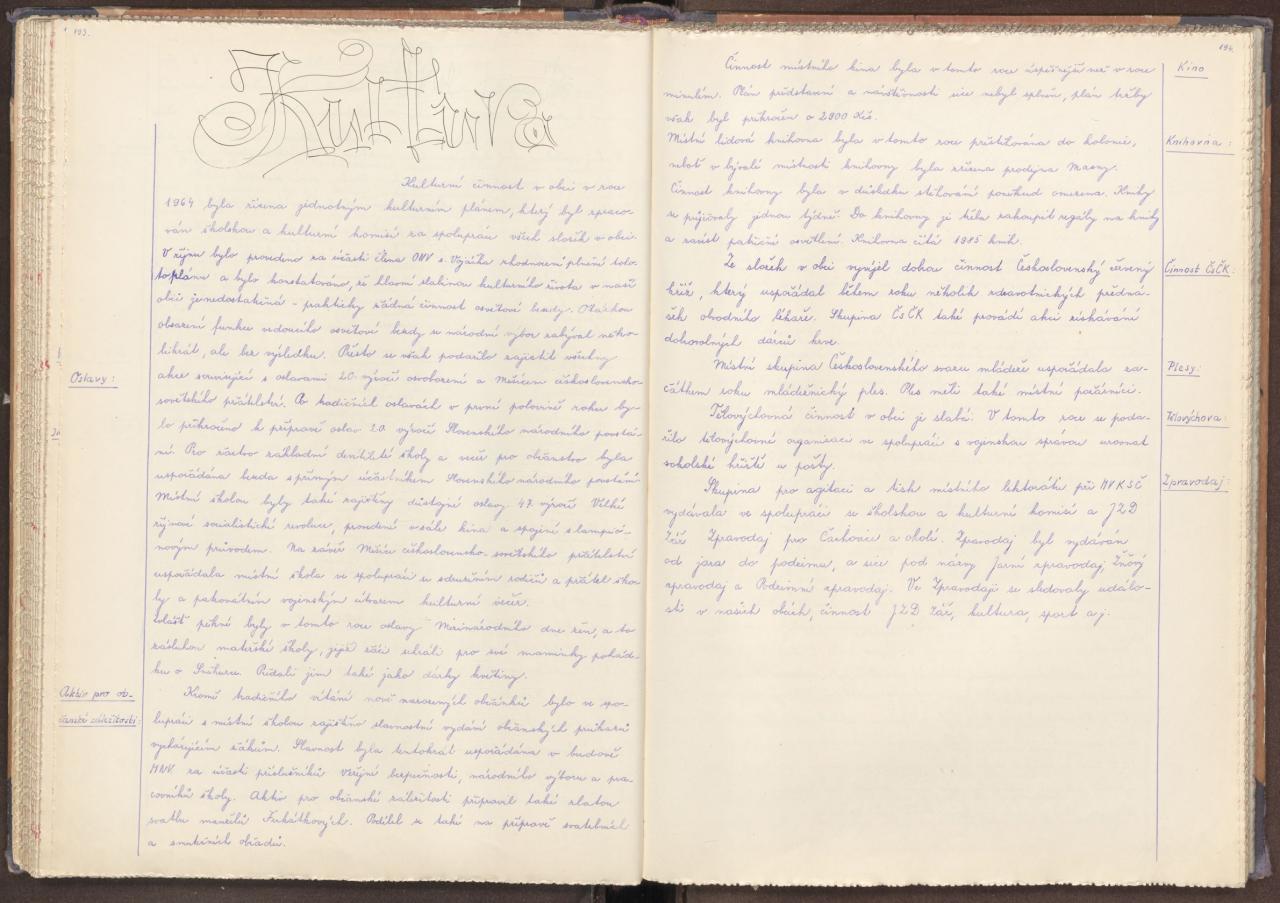 193.
Kultura
Kulturní činnost v obci v roce
1964 byla řízena jednotným kulturním plánem, který byl zpraco-
ván školskou a kulturní komisí za spolupráce všech složek v obci.
V říjnu bylo provedeno za účasti člena ONV s. Vojáčka zhodnocení plnění toho-
to plánu a bylo konstatováno, že hlavní slabinou kulturního života v naší
obci je nedostatečná - prakticky žádná činnost osvětové besedy. Otázkou
obsazení funkce vedoucího osvětové besedy se národní výbor zabýval něko-
likrát, ale bez výsledku. Přesto se však podařilo zajistit všechny
Oslavy:
akce související s oslavami 20. výročí osvobození a Měsícem československo-
sovětského přátelství. Po tradičních oslavách v první polovině roku by-
lo přikročeno k přípravě oslav 20. výročí Slovenského národního povstá-
ní. Pro žactvo základní devítileté školy a večer pro občanstvo byla
uspořádána beseda s přímým účastníkem Slovenského národního povstání.
Místní školou byly také zajištěny důstojné oslavy 47. výročí Velké
říjnové socialistické revoluce, provedené v sále kina a spojené s lampió-
novým průvodem. Na závěr Měsíce československo-sovětského přátelství
uspořádala místní škola ve spolupráci se sdružením rodičů a přátel ško-
ly a patronátním vojenským útvarem kulturní večer.
Zvlášť pěkné byly v tomto roce oslavy Mezinárodního dne žen, a to
zásluhou mateřské školy, jejíž žáci sehráli pro své maminky pohád-
ku o Sněhurce. Předali jim také jako dárky květiny.
Aktiv pro ob-
čanské záležitosti:
Kromě tradičního vítání nově narozených občánků bylo ve spo-
lupráci s místní školou zajištěno slavnostní vydání občanských průkazů
vycházejícím žákům. Slavnost byla tentokrát uspořádána v budově
MNV za účasti příslušníků Veřejné bezpečnosti, národního výboru a pra-
covníků školy. Aktiv pro občanské záležitosti připravil také zlatou
svatbu manželů. Podílel se také na přípravě svatebních
a smutečních obřadů.
194.
Kino
Činnost místního kina byla v tomto roce úspěšnější než v roce
minulém. Plán představení a návštěvnosti sice nebyl splněn, plán tržby
však byl překročen o 2900 Kčs.
Knihovna:
Místní lidová knihovna byla v tomto roce přestěhována do kolonie,
neboť v bývalé místnosti knihovny byla zřízena prodejna Masny.
Činnost knihovny byla v důsledku stěhování poněkud omezena. Knihy
se půjčovaly jednou týdně. Do knihovny je třeba zakoupit regály na knihy
a zavést patřičné osvětlení. Knihovna čítá 1985 knih.
Činnost ČsČK:
Ze složek v obci vyvíjel dobrou činnost Československý červený
kříž, který uspořádal během roku několik zdravotnických předná-
šek obvodního lékaře. Skupina ČsČK také provádí akci získávání
dobrovolných dárců krve.
Plesy:
Místní skupina Československého svazu mládeže uspořádala za-
čátkem roku mládežnický ples. Ples měli také místní požárníci.
Tělovýchova
Tělovýchovná činnost v obci je slabá. V tomto roce se poda-
řilo tělovýchovné organizaci ve spolupráci s vojenskou správou urovnat
sokolské hřiště u pošty.
Zpravodaj:
Skupina pro agitaci a tisk místního lektorátu při MV KSČ
vydávala ve spolupráci se školskou a kulturní komisí a JZD
Zář Zpravodaj pro Čachovice a okolí. Zpravodaj byl vydáván
od jara do podzima, a sice pod názvy Jarní zpravodaj, Žňový
zpravodaj a Podzimní zpravodaj. Ve Zpravodaji se sledovaly událo-
sti v našich obcích, činnost JZD Zář, kultura, sport aj.